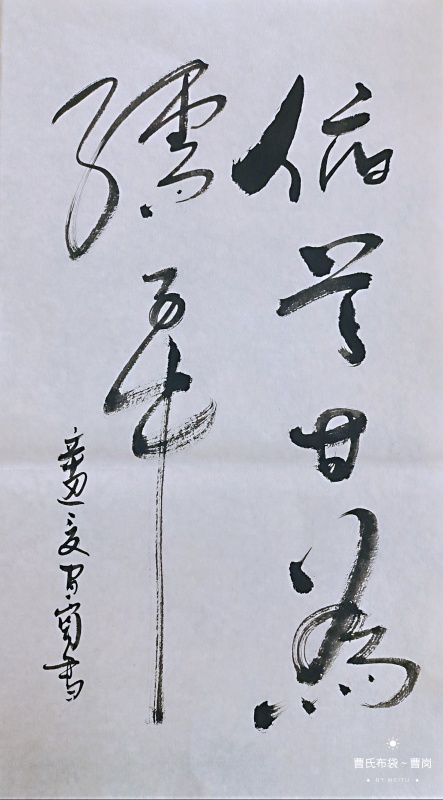 俯首甘為
孺子牛
曹氏布袋~曹岗
BY MEITU